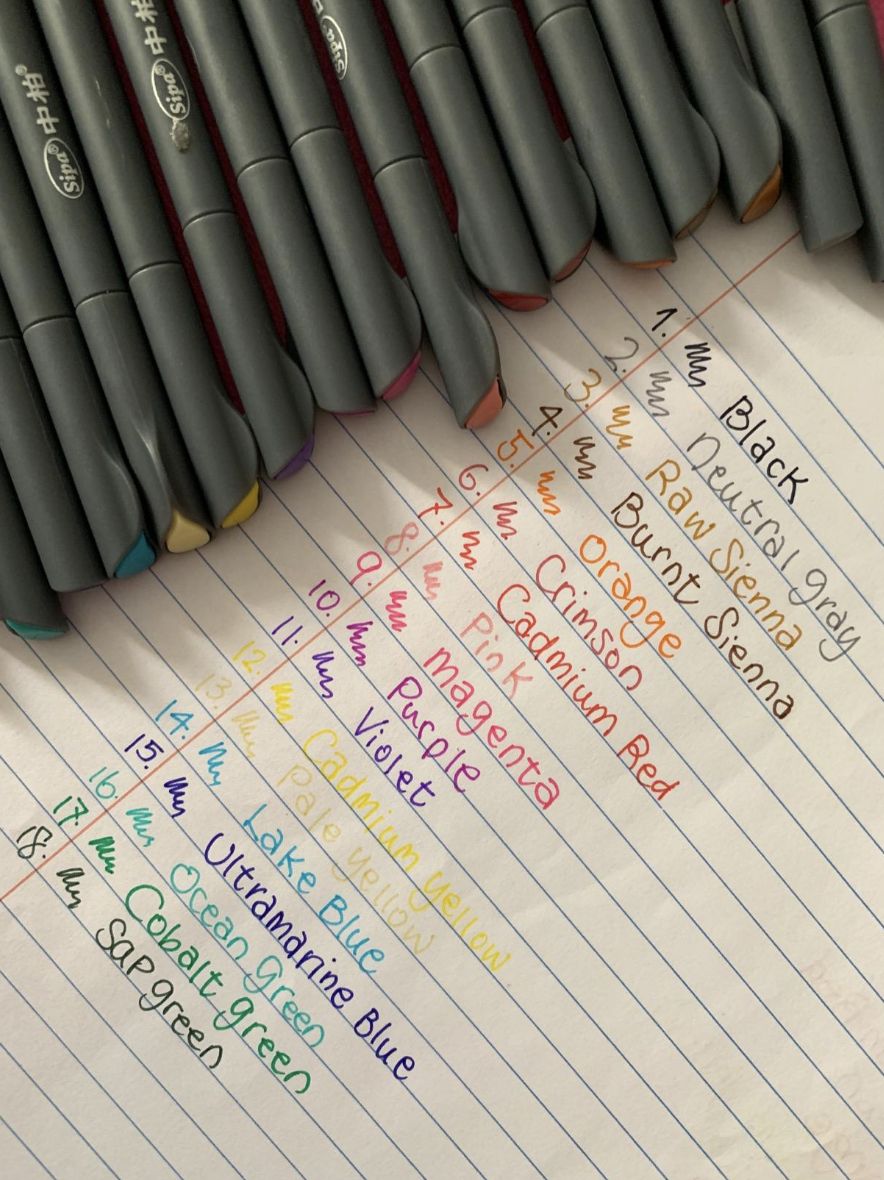 中柏®
Sipa®
中柏
Sipa®
Sipa
1. Black
2. Neutral gray
3. Raw Sienna
4. Burnt Sienna
5. Orange
6. Crimson
7. Cadmium Red
8. Pink
9. Magenta
10. Purple
11. Violet
12. Cadmium yellow
13. Pale yellow
14. Lake Blue
15. Ultramarine Blue
16. Ocean green
17. Cobalt green
18. Sap green